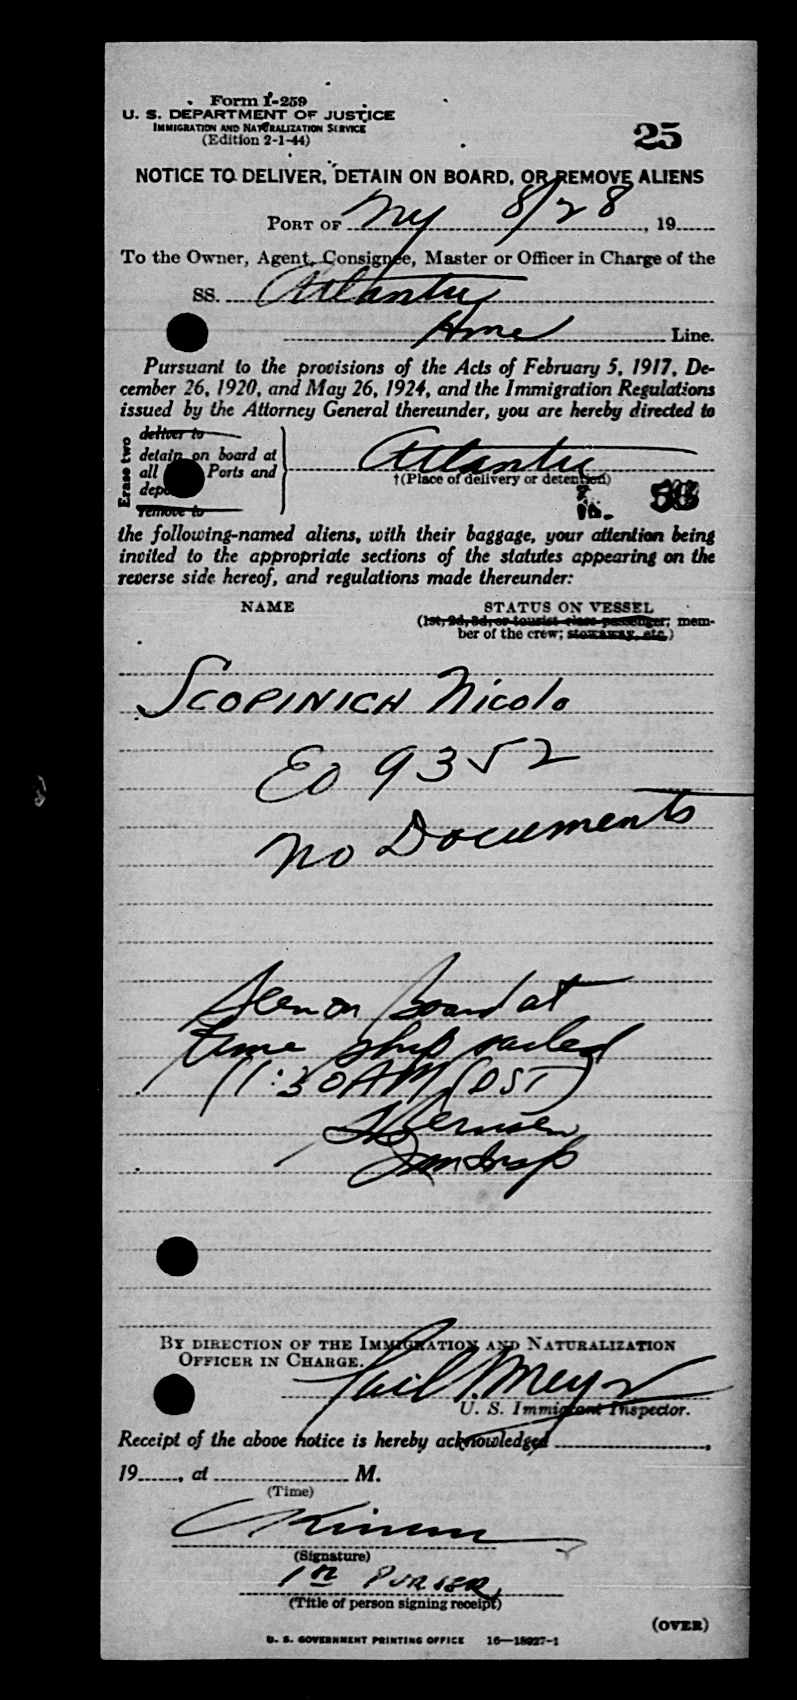 Form I-259
U. S. DEPARTMENT OF JUSTICE
IMMIGRATION AND NATURALIZATION SERVICE
(Edition 2-1-44)
25
NOTICE TO DELIVER, DETAIN ON BOARD, OR REMOVE ALIENS
PORT OF NY 8/28, 19
To the Owner, Agent, Consignee, Master or Officer in Charge of the
SS. Atlantic
Home Line.
Pursuant to the provisions of the Acts of February 5, 1917, De-
cember 26, 1920, and May 26, 1924, and the Immigration Regulations
issued by the Attorney General thereunder, you are hereby directed to
Erase two
deliver to
detain on board at
all Ports and
remove to
Atlantic
†(Place of delivery or detention)
the following-named aliens, with their baggage, your attention being
invited to the appropriate sections of the statutes appearing on the
reverse side hereof, and regulations made thereunder:
NAME STATUS ON VESSEL
(1st, 2d, 3d, or tourist class passenger; mem-
ber of the crew; stowaway, etc.)
SCOPINICH Nicolo
EO 9352
No Documents
Seen on Board at
time ship sailed
11:30AM (DST)
BY DIRECTION OF THE IMMIGRATION AND NATURALIZATION
OFFICER IN CHARGE.
U. S. Immigrant Inspector.
Receipt of the above notice is hereby acknowledged ,
19 , at M.
(Time)
(Signature)
1st PURSER
(Title of person signing receipt)
(OVER)
U. S. GOVERNMENT PRINTING OFFICE 16—18927-1